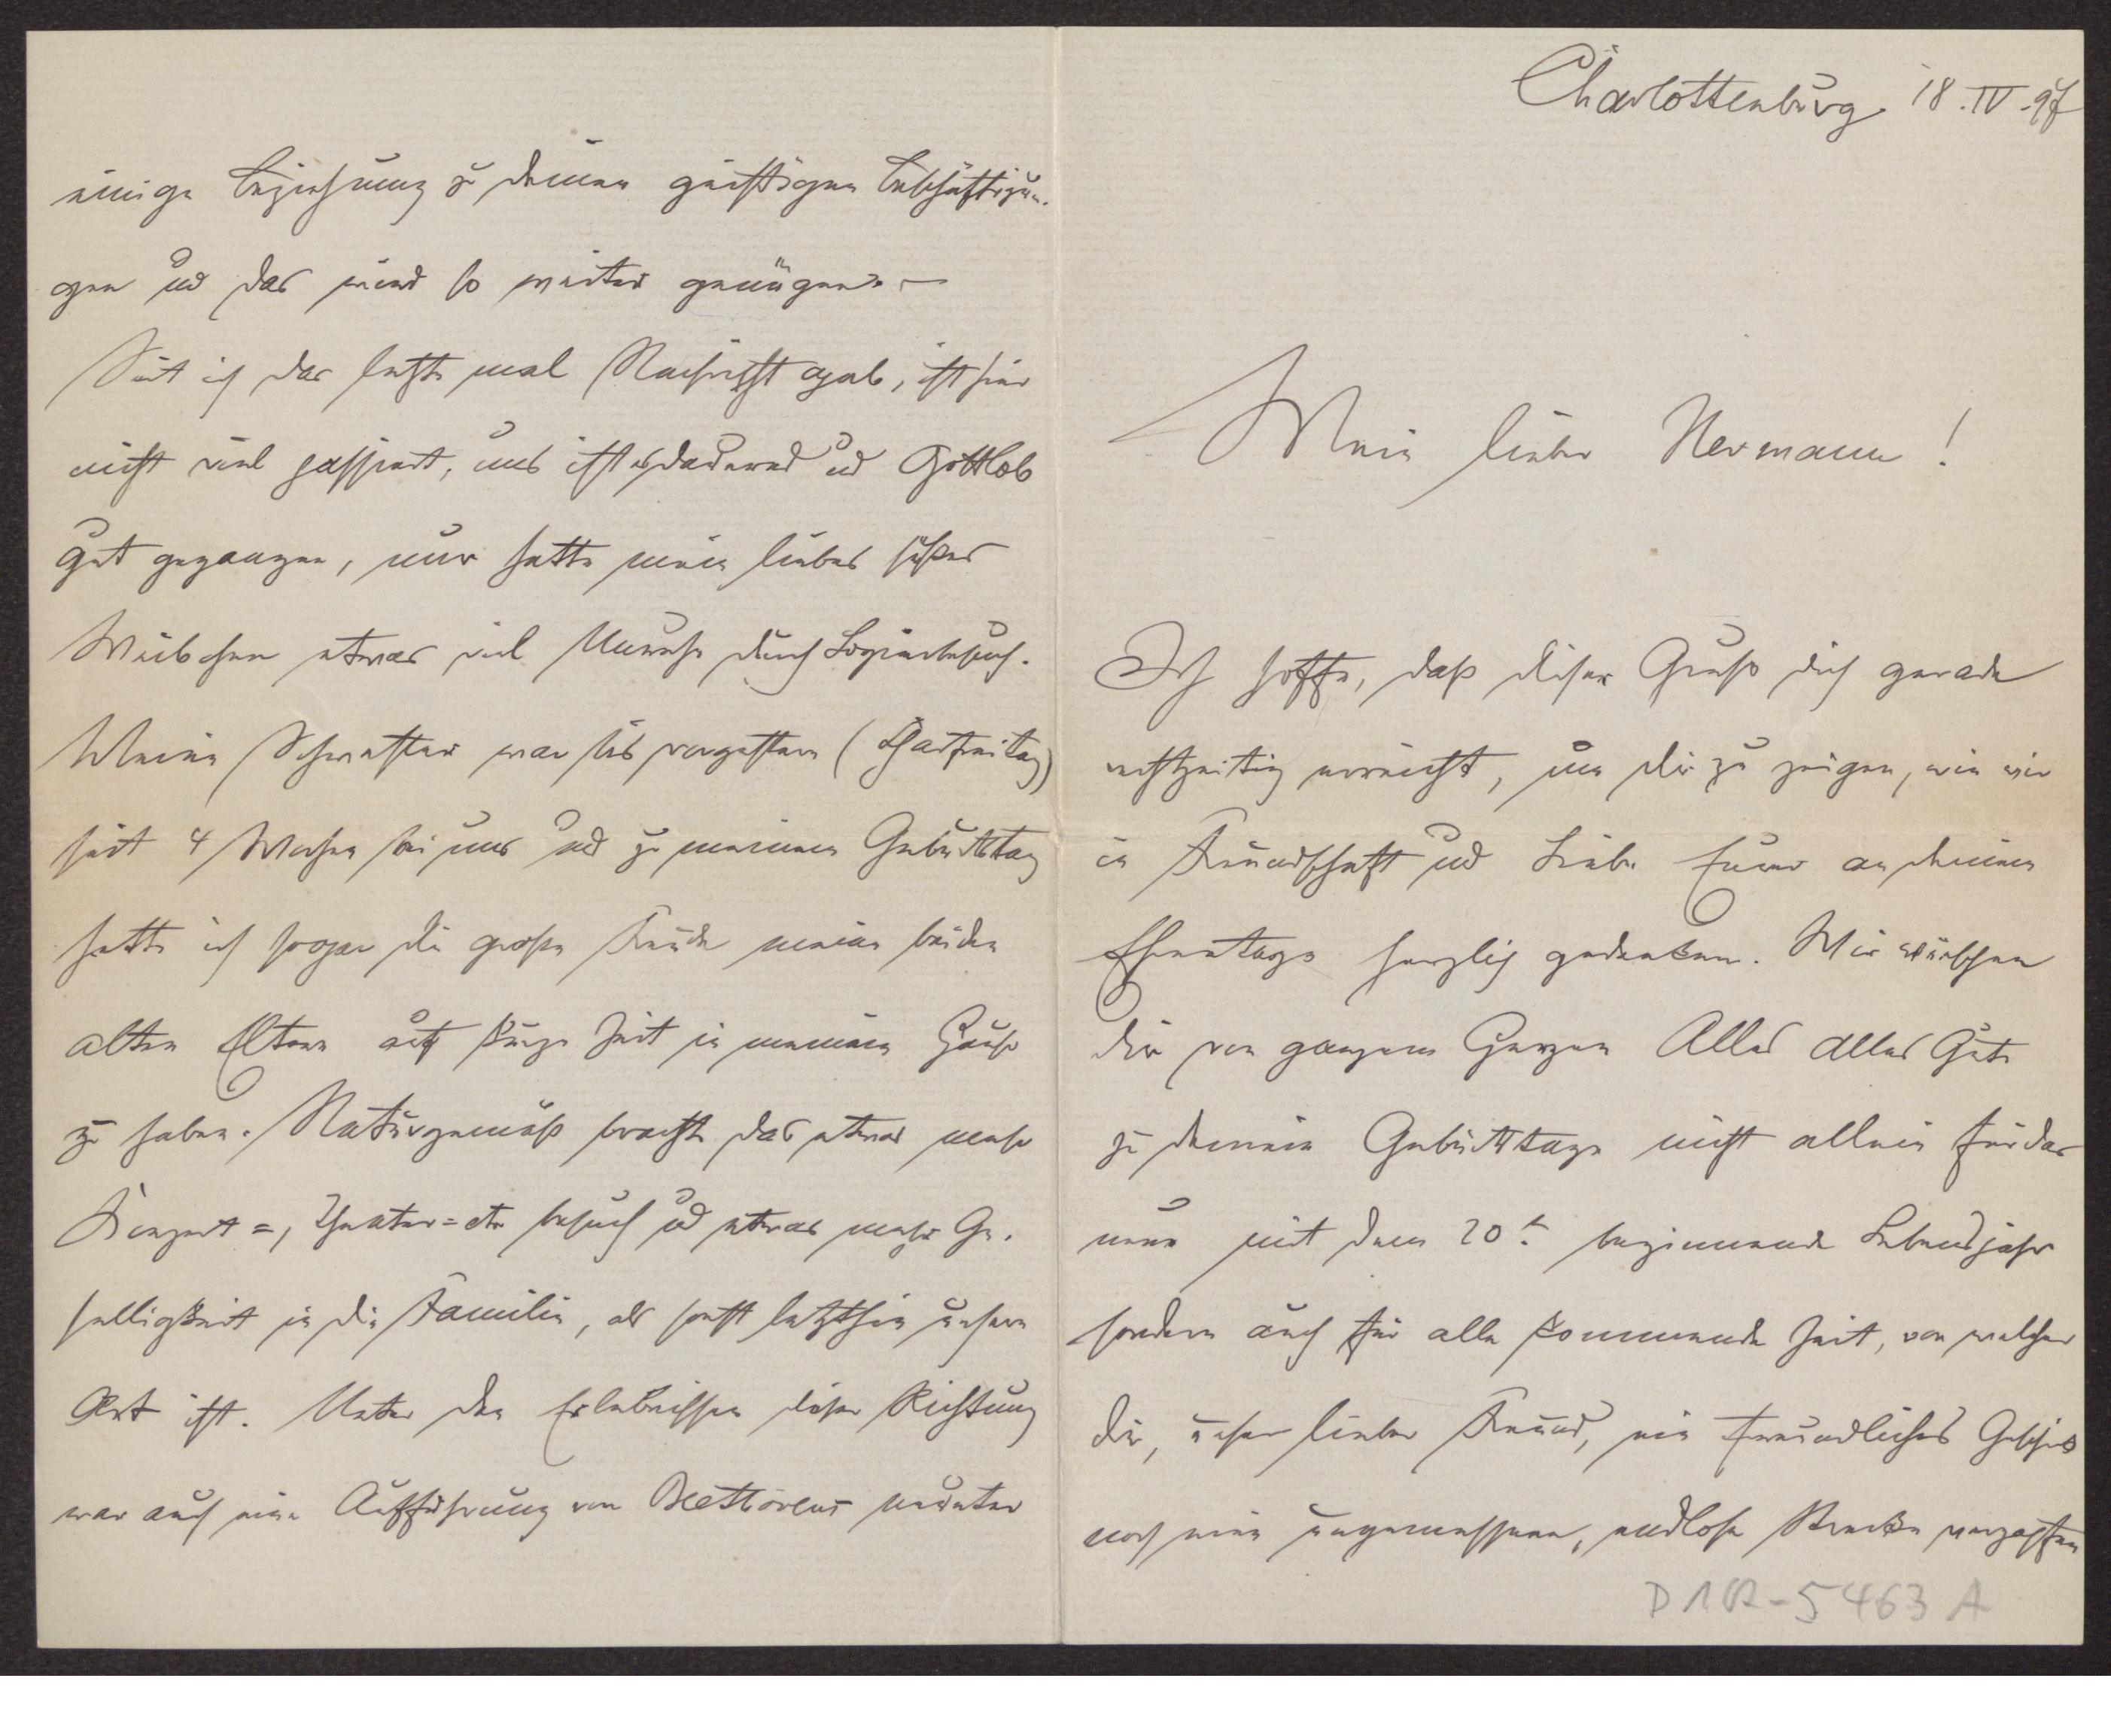 Charlottenburg 18.IV.97
Mein lieber Hermann!
Ich hoffe, daß dieser Gruß dich gerade
rechtzeitig erreicht, um dir zu zeigen, wie wir
in Freundschaft und Liebe Eurer an deinem
Ehrentage herzlich gedenken. Wir wünschen
dir von ganzem Herzen Alles alles Gute
zu deinem Geburtstage nicht allein für das
nun mit dem 20t beginnende Lebensjahr
sondern auch für alle kommende Zeit, von welcher
dir, unser lieber Freund, ein freundliches Geschick
noch eine ungemessene, endlose Strecke
D 1902-5463 A
einige Beziehung zu deinen geistigen Beschäftigun-
gen und das wird so weiter genügen. —
Seit ich das letzte mal Nachricht gab, ist hier
nicht viel passiert, uns ist es dauernd und Gottlob
gut gegangen, nur hatte mein liebes süßes
Weibchen etwas viel Unruhe durch Logierbesuch.
Meine Schwester war bis vorgestern (Charfreitag)
seit 4 Wochen bei uns und zu meinem Geburtstag
hatte ich sogar die große Freude meine beiden
alten Eltern auf kurze Zeit in meinem Hause
zu haben. Naturgemäß brachte das etwas mehr
Konzert=, Theater= etc besuch und etwas mehr Ge-
selligkeit in die Familie, als sonst letzthin unsere
Art ist. Unter den Erlebnissen dieser Richtung
war auch eine Aufführung von Beethovens neunter